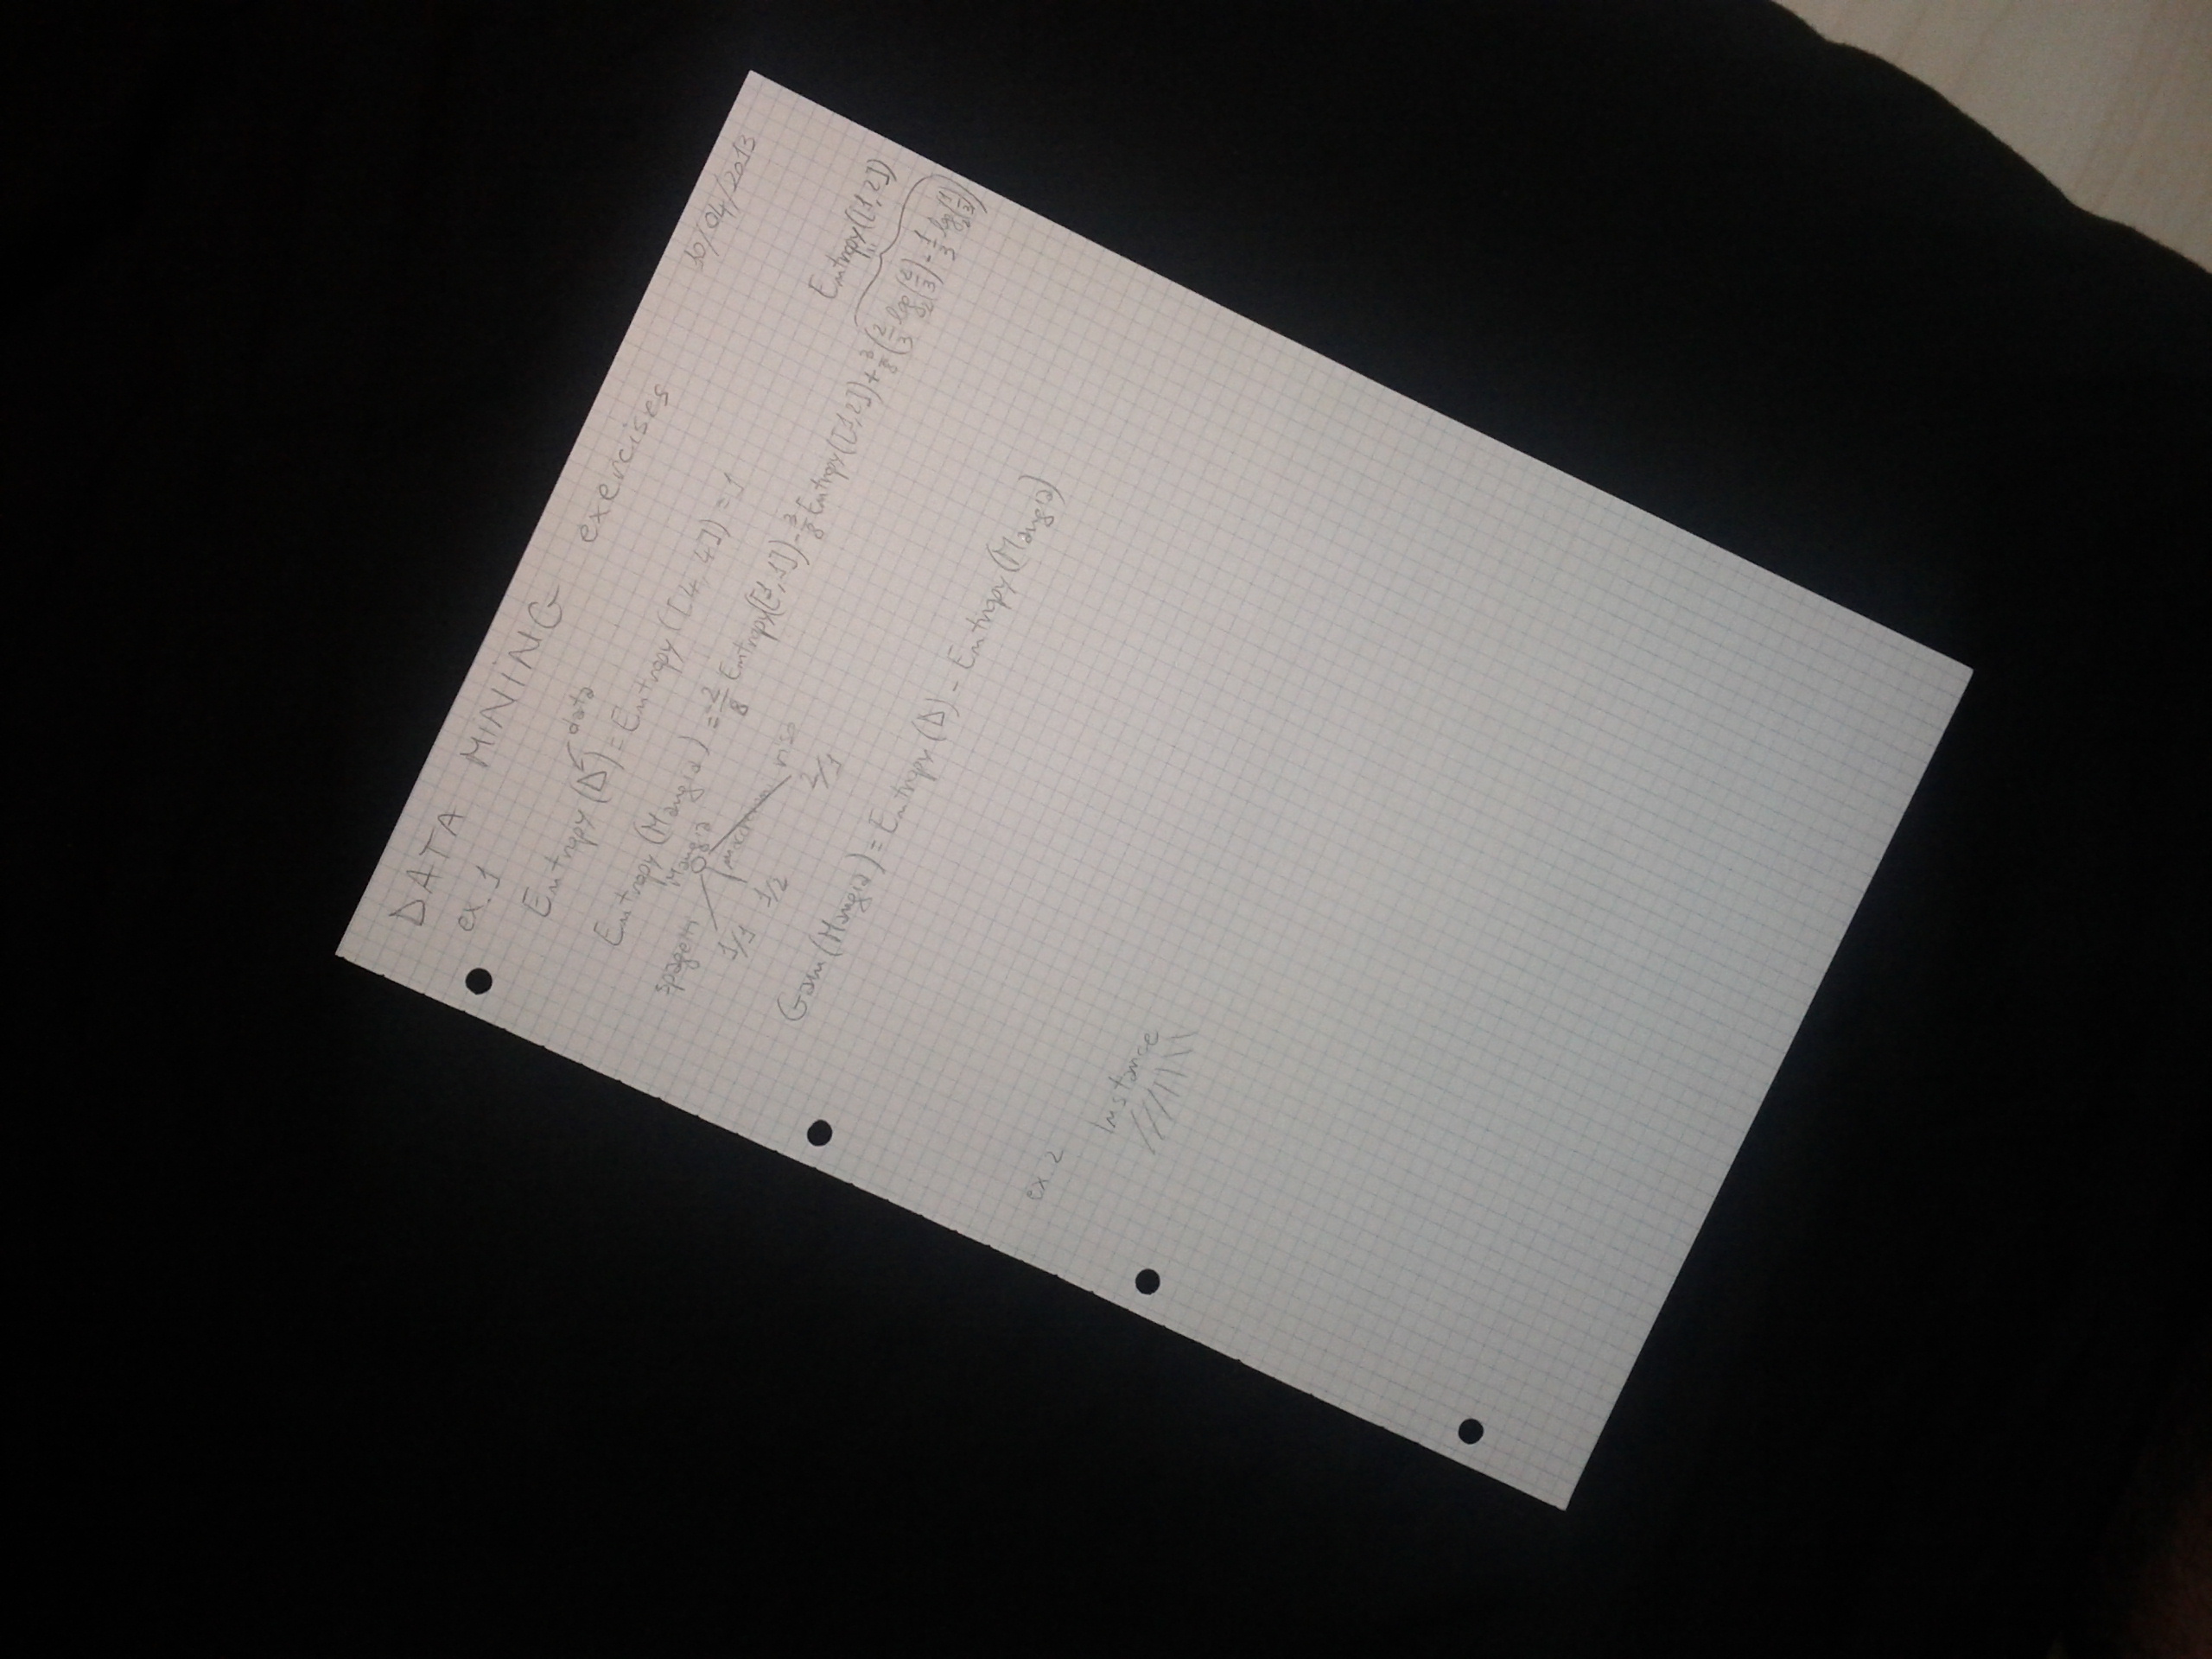 DATA MINING exercises
30/04/2013
ex. 1
data
Entropy (D) = Entropy ([4, 4]) = 1
Entropy ([1,2])
Entropy (Mangia) = -2/8 Entropy([1,1]) - 3/8 Entropy([1,2]) + 3/8 (2/3 log2(2/3) - 1/3 log2(1/3))
Mangia
spagetti riso
1/1 1/2 2/1
Gain (Mangia) = Entropy (D) - Entropy (Mangia)
ex. 2
Instance